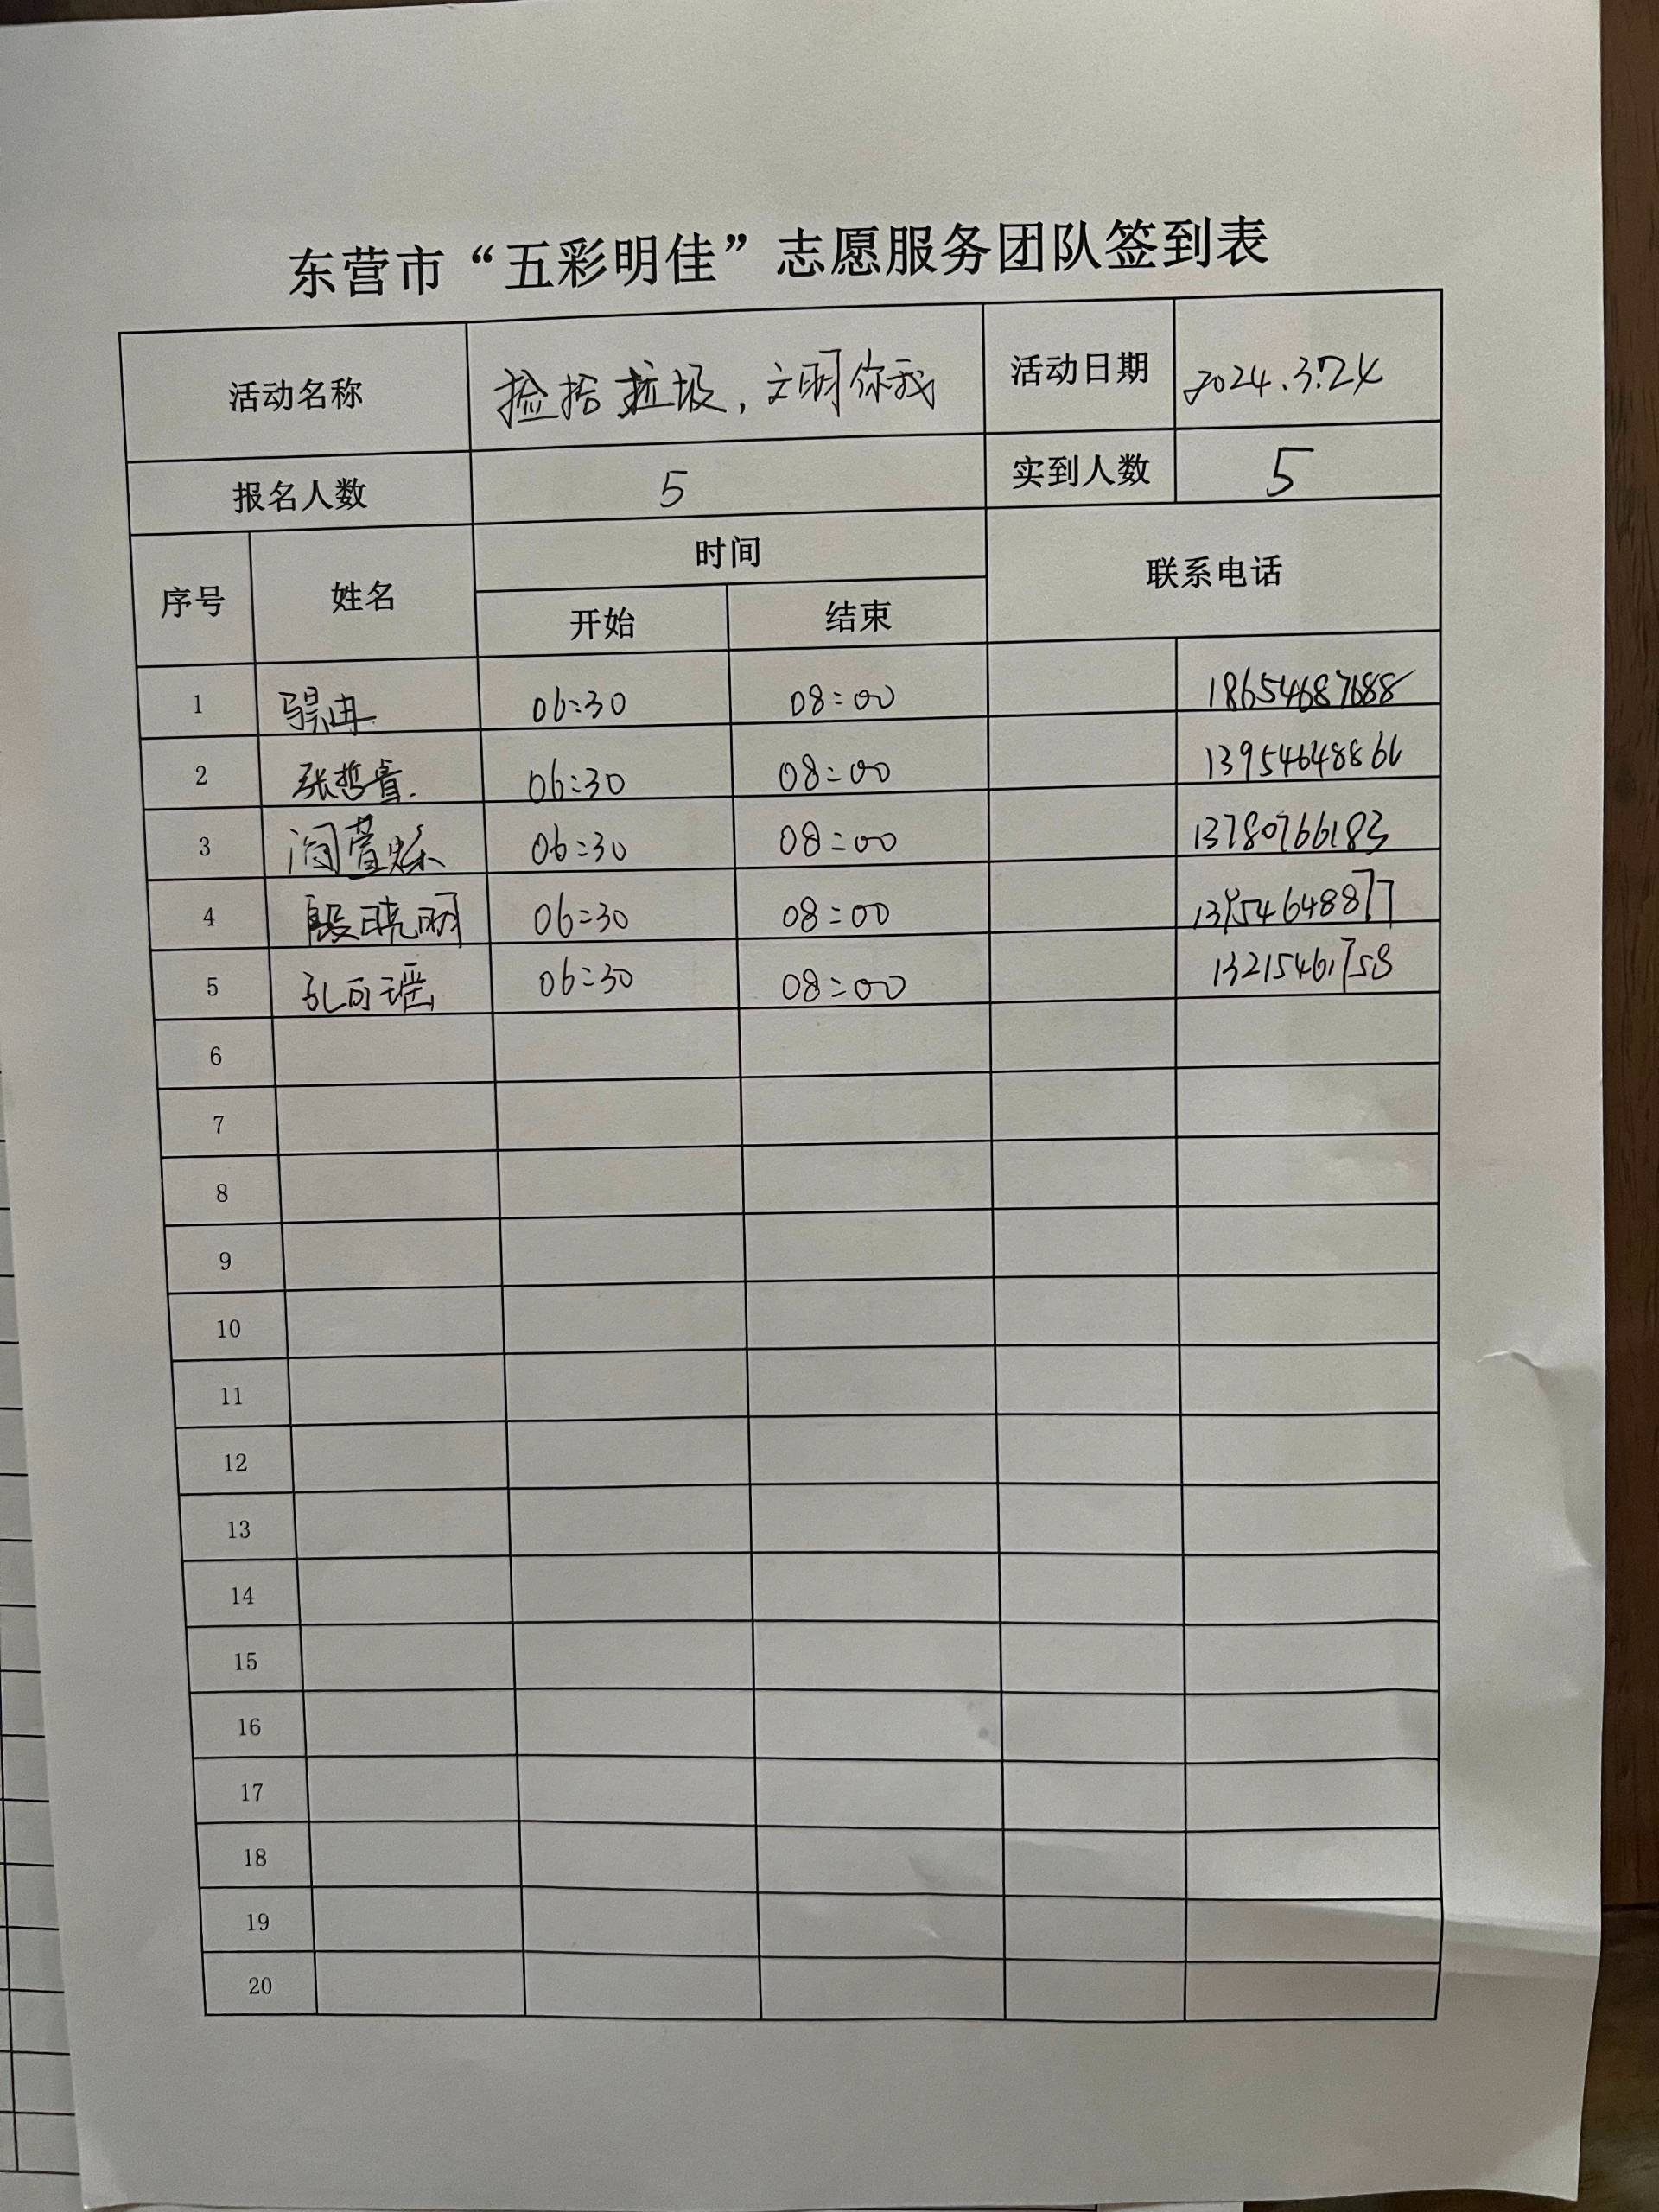 东营市“五彩明佳”志愿服务团队签到表
活动名称 捡拾垃圾,文明你我 活动日期 2024.3.24
报名人数 5 实到人数 5
序号 姓名 时间 联系电话
开始 结束
1 06:30 08:00 18654687688
2 张哲睿. 06:30 08:00 13954648866
3 闫萱烁 06:30 08:00 13780766183
4 殷晓明 06:30 08:00 13954648877
5 孔可瑶 06:30 08:00 13215461758
6
7
8
9
10
11
12
13
14
15
16
17
18
19
20